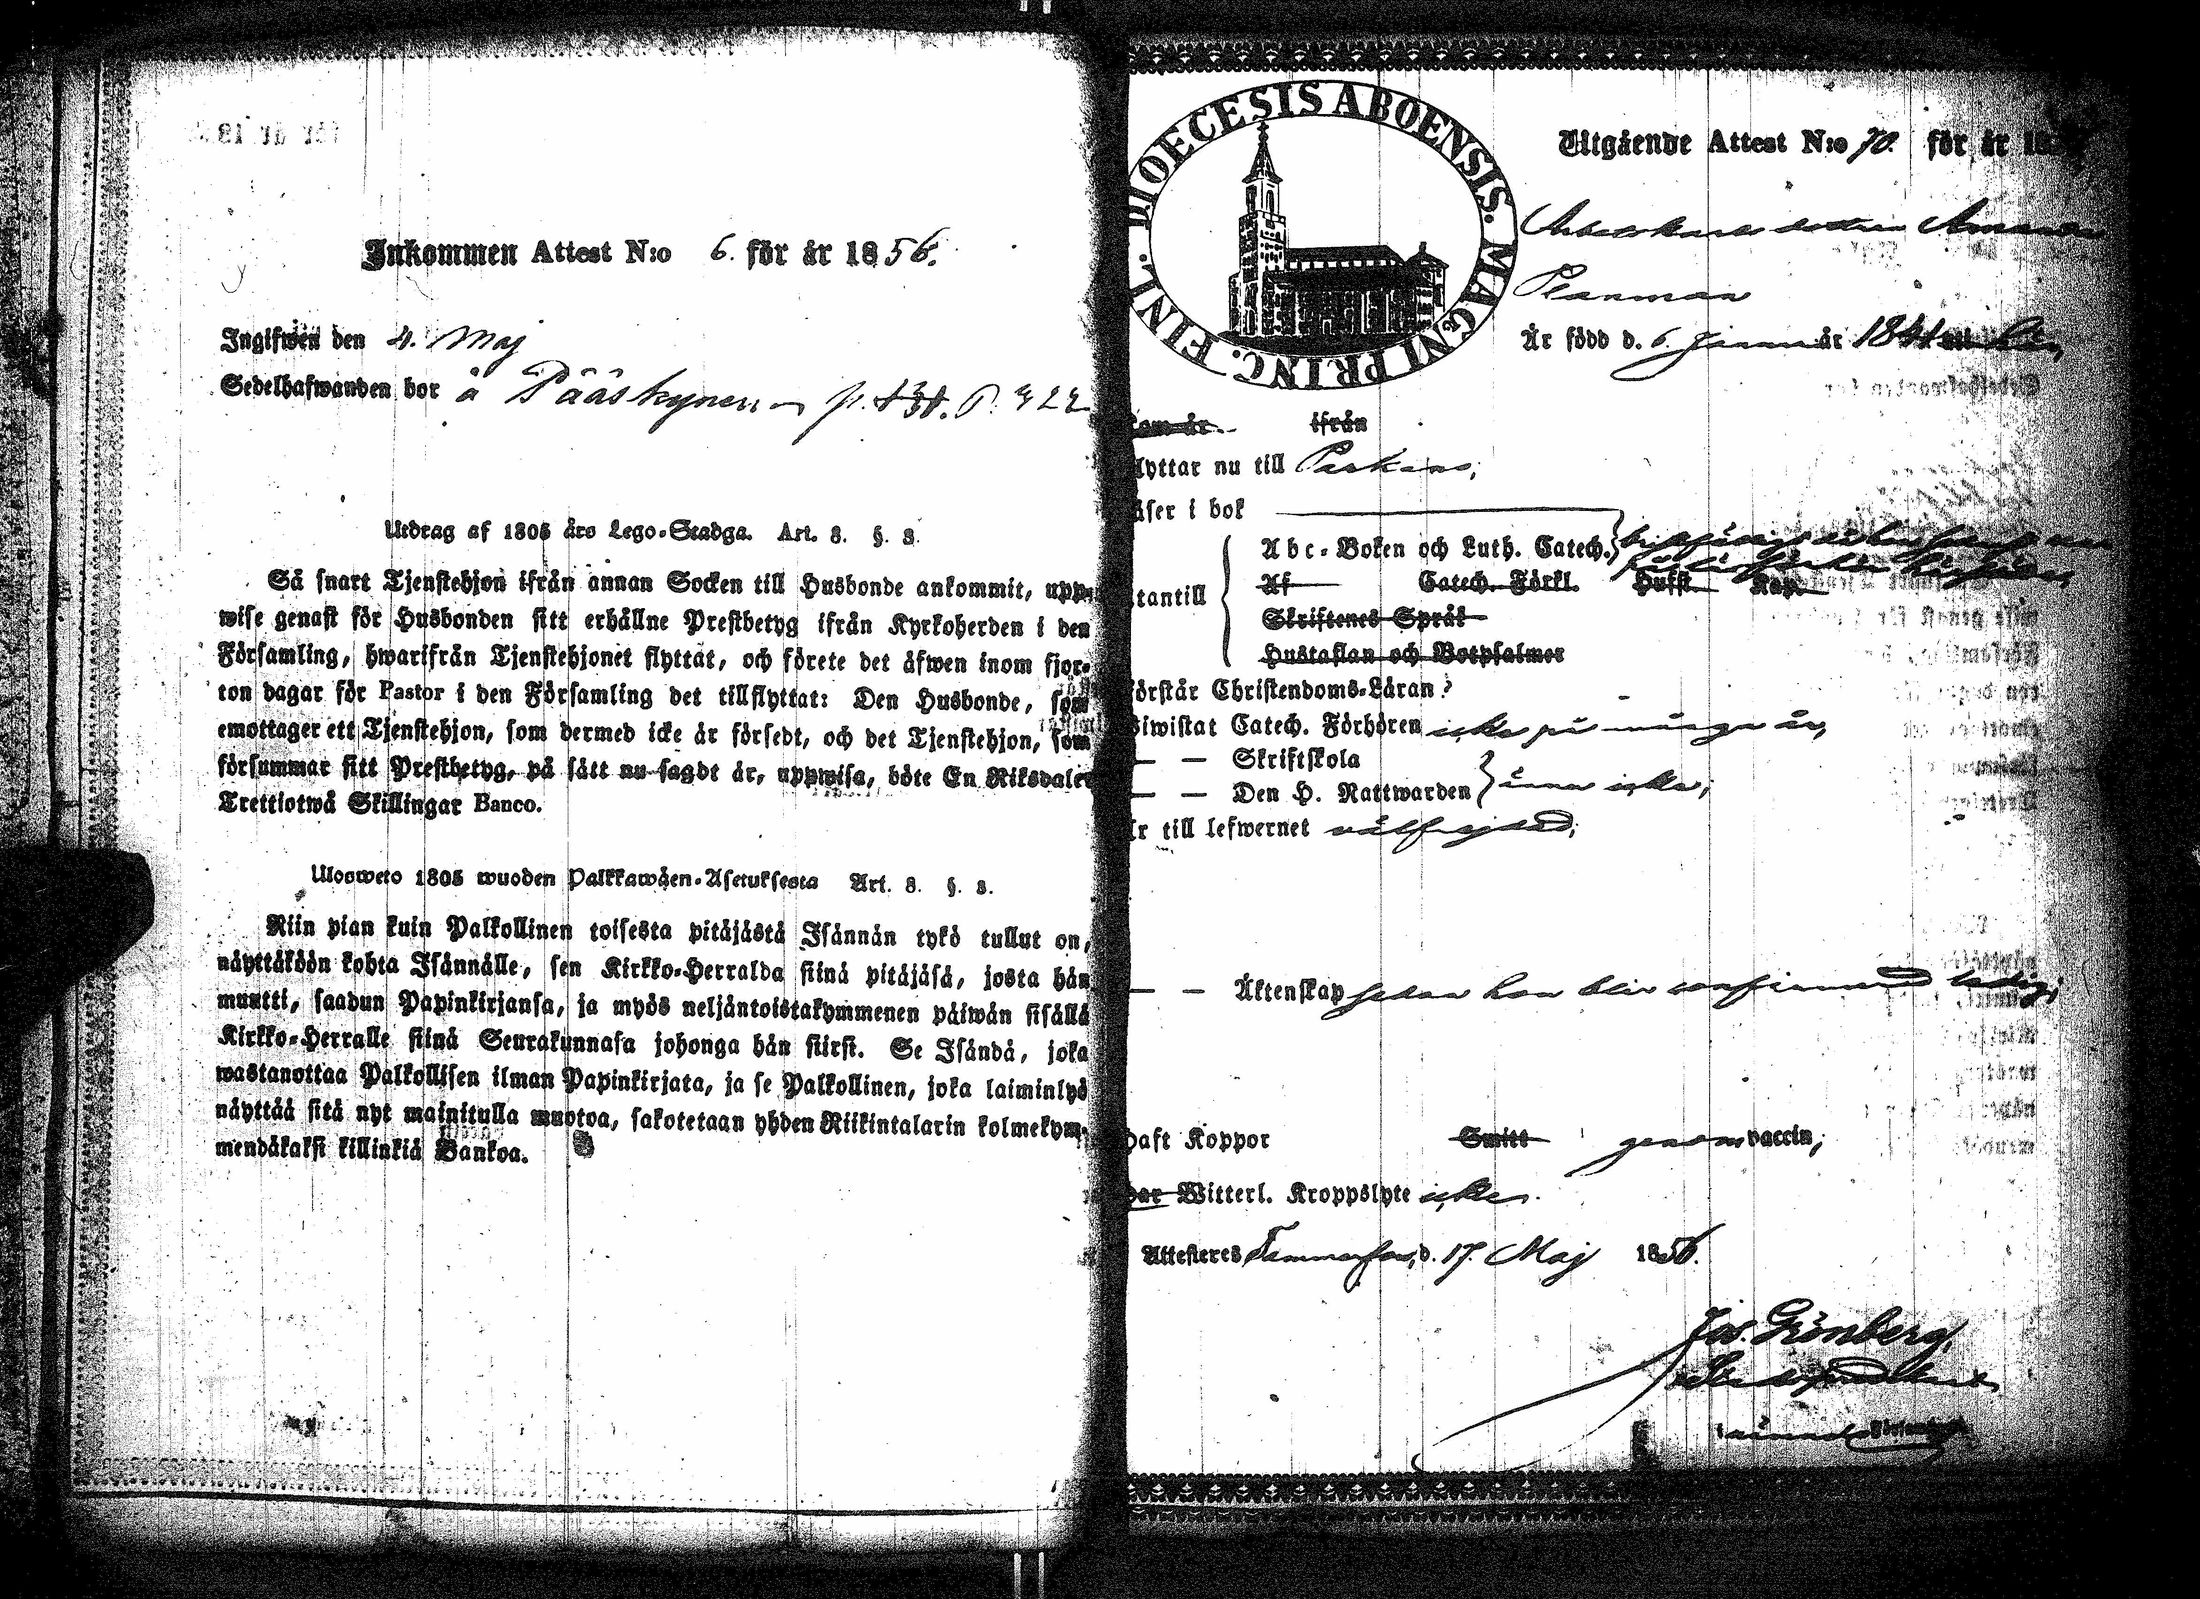 Inkommen Attest N:o 6. för år 1856.
Ingifwen den 4. Maj
Sedelhafwanden bor å Pääskynen p. 322
Utdrag af 1805 års Lego-Stadga. Art. 8. §. 3.
Så snart Tjenstehjon ifrån annan Socken till Husbonde ankommit, upp-
wise genast för Husbonden sitt erhållne Prestbetyg ifrån Kyrkoherden i den
Församling, hwarifrån Tjenstehjonet flyttat, och förete det äfwen inom fjor-
ton dagar för Pastor i den Församling det tillflyttat: Den Husbonde, som
emottager ett Tjenstehjon, som dermed icke är försedt, och det Tjenstehjon, som
försummar sitt Prestbetyg, på sätt nu sagdt är, uppwisa, böte En Riksdaler
Trettiotwå Skillingar Banco.
Ulosweto 1805 wuoden Palkkawäen-Asetuksesta Art. 8. §. 3.
Niin pian kuin Palkollinen toisesta pitäjästä Isännän tykö tullut on,
näyttäköön kohta Isännälle, sen Kirkko-Herralda siinä pitäjäsä, josta hän
muutti, saadun Papinkirjansa, ja myös neljäntoistakymmenen päiwän sisällä
Kirkko-Herralle siinä Seurakunnasa johonga hän siirsi. Se Isändä, joka
wastanottaa Palkollisen ilman Papinkirjata, ja se Palkollinen, joka laiminlyö
näyttää sitä nyt mainitulla muotoa, sakotetaan yhden Riikintalarin kolmekym-
mendäkaksi killinkiä Bankoa.
DIOECESIS ABOENSIS. MAGNI PRINC. FINL.
Utgående Attest N:o 70. för år 18
Arbetskarls dottren Amanda
Planman
Är född d. 6. Januari år 1841
Kom år ifrån
lyttar nu till Parkano;
äser i bok
Abc-Boken och Luth. Catech.
Af Catech. Förkl. Hufst. Kap.
tantill
Skriftenes Språk
Hustaflan och Botpsalmer
örstår Christendoms-Läran
iwistat Catech. Förhören icke på många år,
— — Skriftskola
— — Den H. Nattwarden ännu icke;
r till lefwernet wälfrejdad;
— — Äktenskap sedan hon blir confirmerad ledig;
haft Koppor Smitt genom vaccin;
har Witterl. Kroppslyte icke.
Attesteres Tammerfors, d. 17. Maj 1856.
Jos. Grönberg,